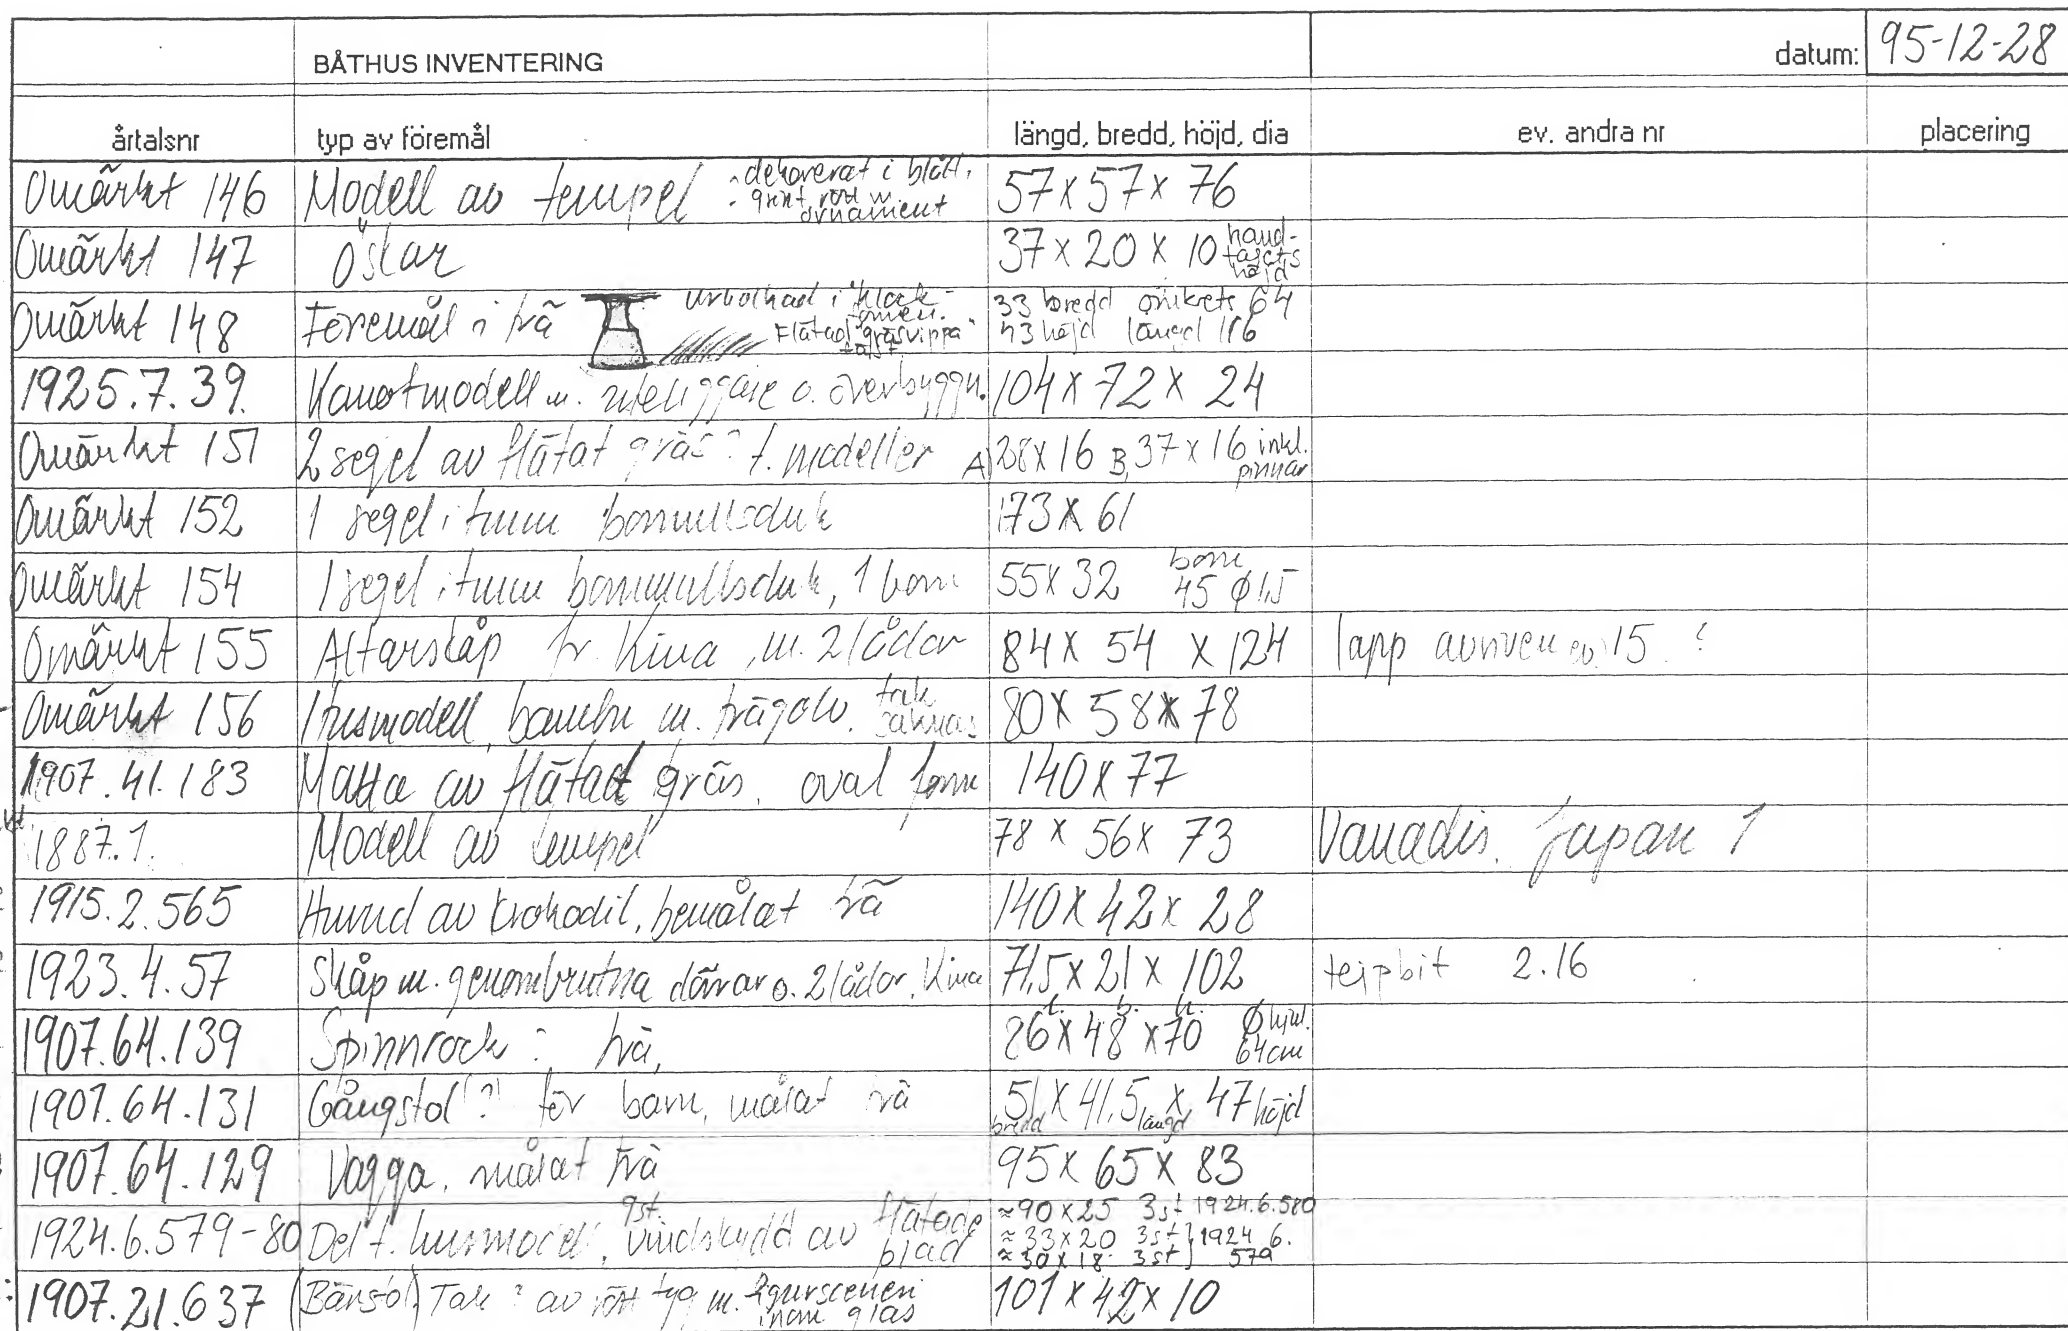 BÅTHUS INVENTERING datum: 95-12-28
årtalsnr typ av föremål längd, bredd, höjd, dia ev. andra nr placering
Omärkt 146 Modell av tempel dekorerat i blått, 57 x 57 x 76
ornament
Omärkt 147 Öskar 37 x 20 x 10 handtagets höjd
Omärkt 148 Föremål i trä Urholkad i "klockformen. 33 bredd omkrets 64
Flätad "gräsvippa" 43 höjd längd 116
1925.7.39. Kanotmodell m. utliggare o. överbyggn. 104 x 72 x 24
Omärkt 151 2 segel av flätat gräs? t. modeller A) 28 x 16 B, 37 x 16 inkl. pinnar
Omärkt 152 1 segel i tunn bomullsduk 173 x 61
Omärkt 154 1 segel i tunn bommullsduk, 1 bom 55 x 32 bom 45 Ø 1,5
Omärkt 155 Altarskåp fr. Kina, m. 2 lådor 84 x 54 x 124 lapp 15 ?
Omärkt 156 Husmodell, bambu m. trägolv. tak saknas 80 x 58 x 78
1907.41.183 Matta av flätat gräs. oval form 140 x 77
1887.1. Modell av tempel 78 x 56 x 73 Vanadis. Japan 1
1915.2.565 Huvud av krokodil, bemålat trä 140 x 42 x 28
1923.4.57 Skåp m. genombrutna dörrar o. 2 lådor, Kina 71,5 x 21 x 102 tejpbit 2.16
l. b. h.
1907.64.139 Spinnrock? trä, 86 x 48 x 70 Ø hjul. 64 cm
1907.64.131 Gångstol? för barn, målat trä 51 bredd x 41,5 längd x 47 höjd
1907.64.129 Vagga. målat trä 95 x 65 x 83
1924.6.579-80 Del t. husmodell, 9st. vindskydd av flätade blad ≈ 90 x 25 3st 1924.6.580
≈ 33 x 20 3st } 1924.6.
≈ 30 x 18 3st } 579
1907.21.637 (Bärstol) Tak? av rött tyg m. figurscener inom glas 101 x 42 x 10